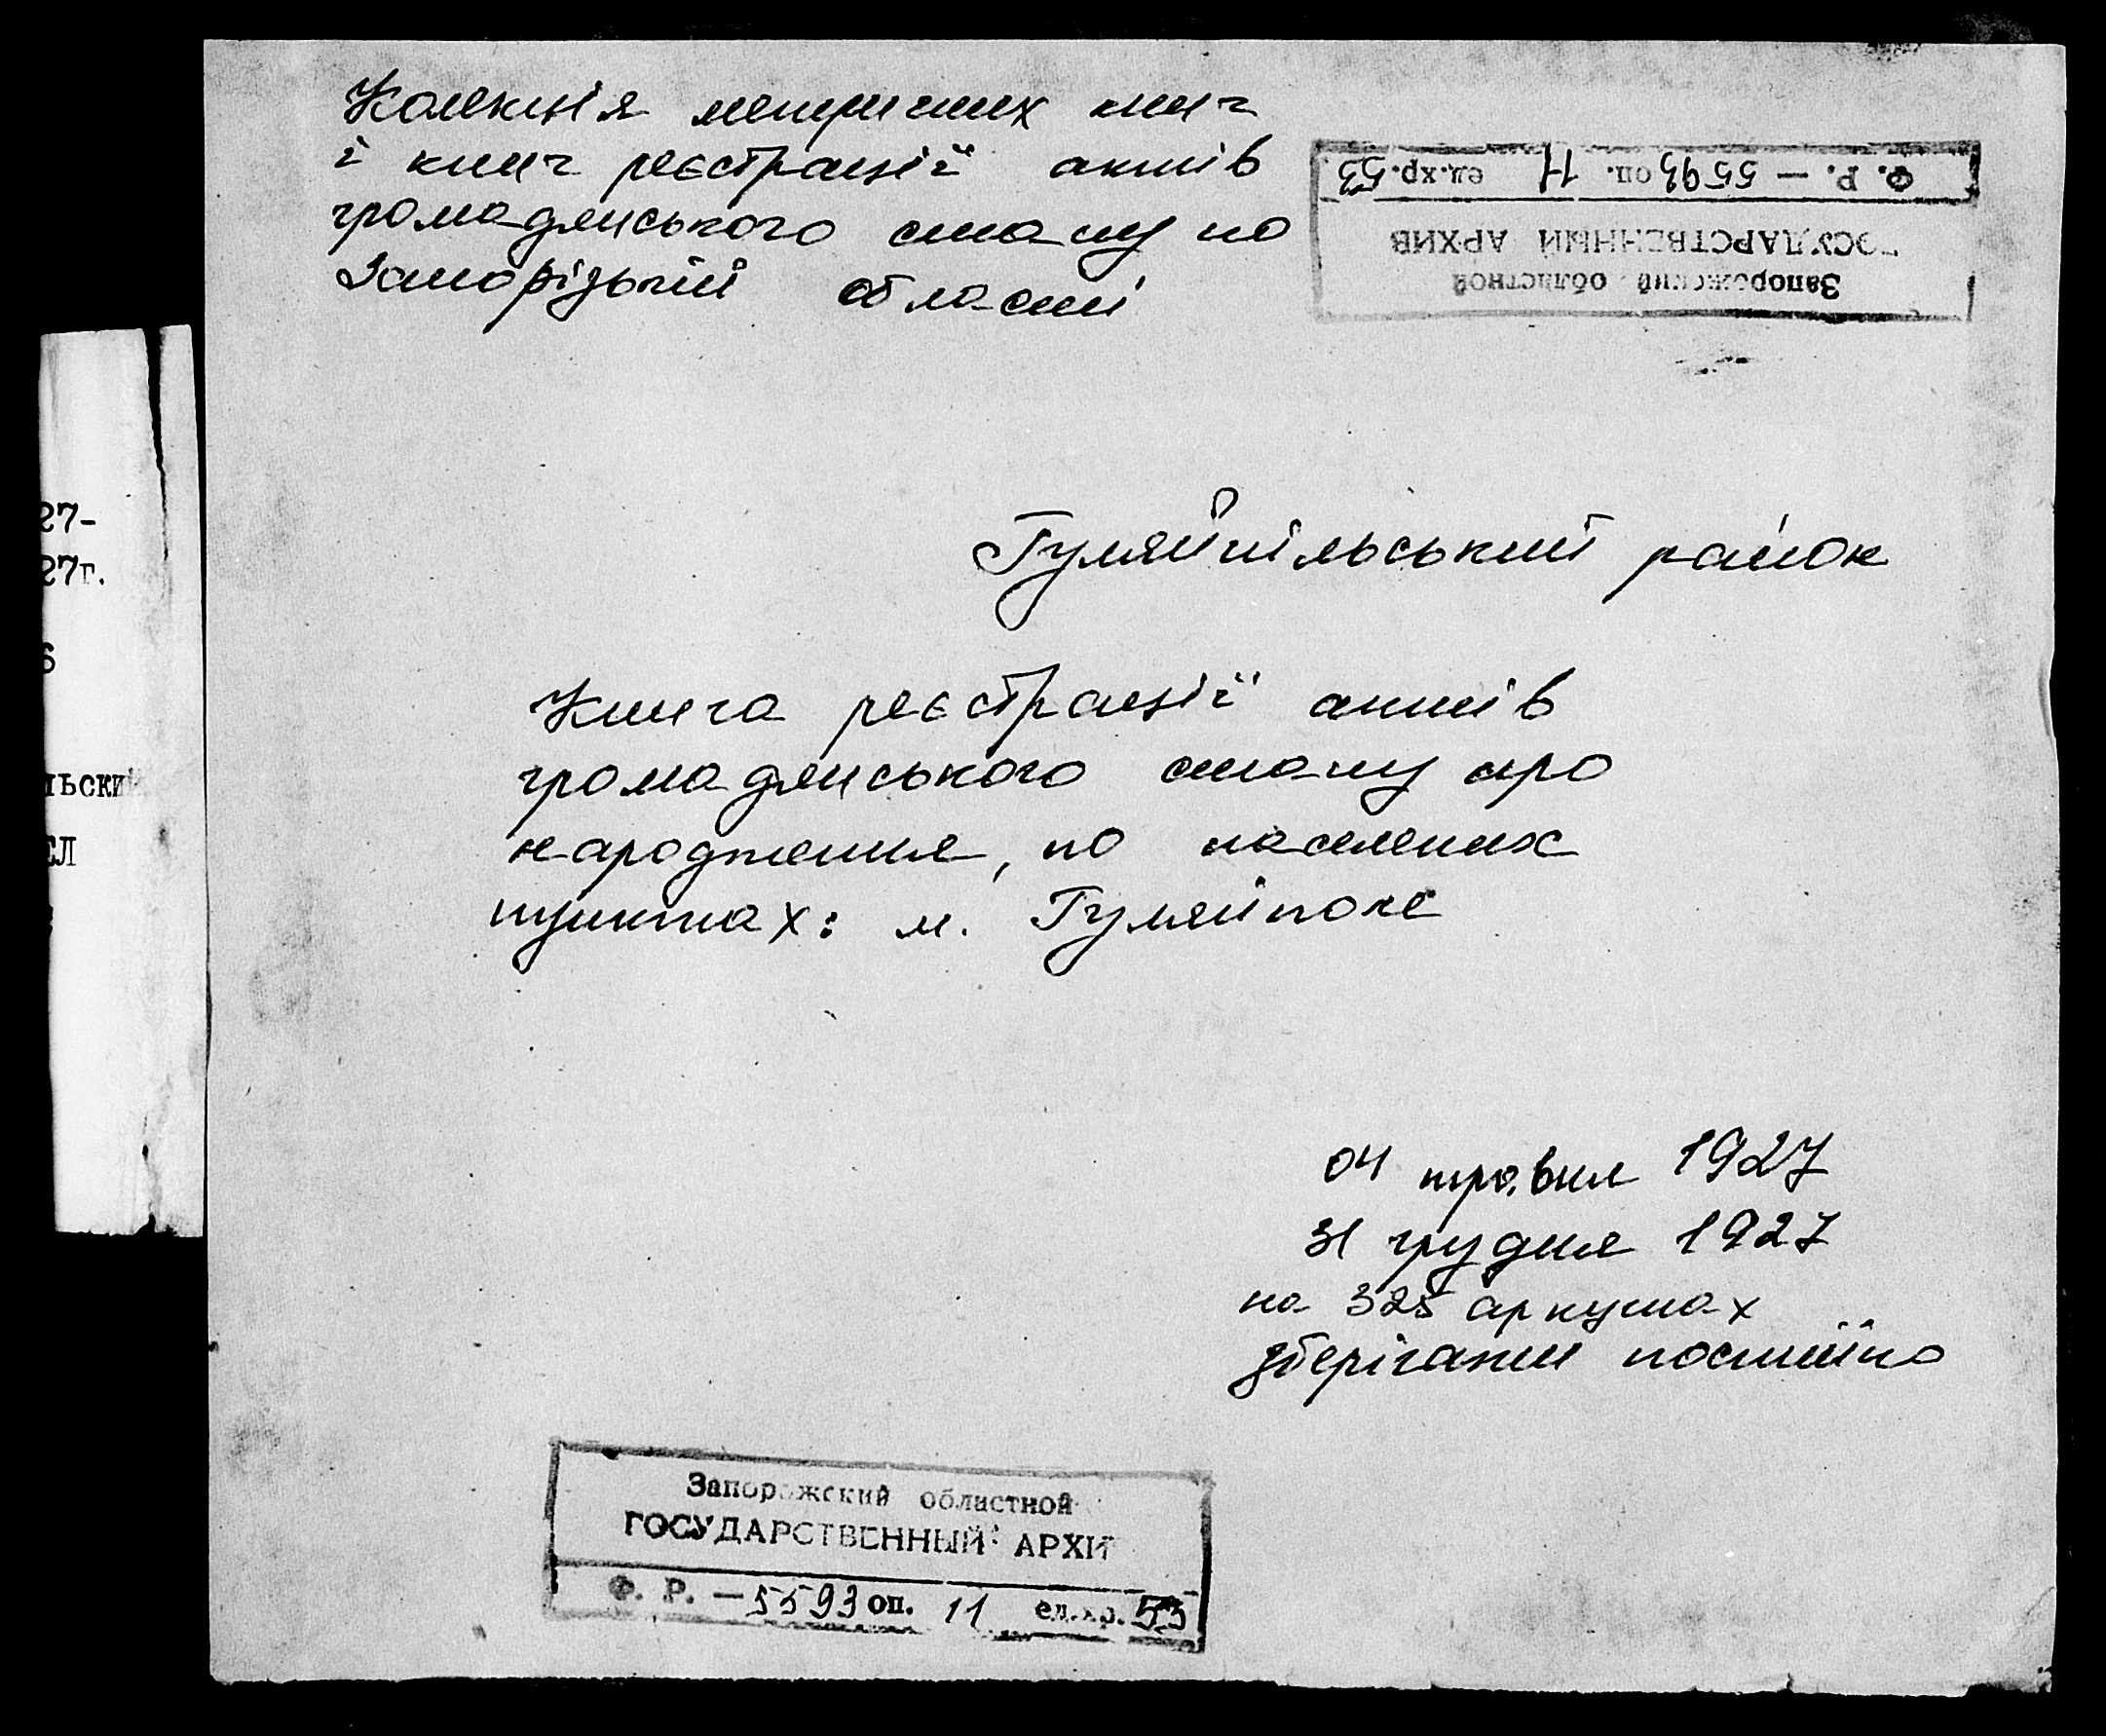 Колекція метричних книг
і книг реєстрації актів
громадянського стану по
Запорізькій області
Ф. Р. — 5593 оп. 11 ед.хр. 53
ГОСУДАРСТВЕННЫЙ АРХИВ
Запорожский областной
27-
27г.
6
льский
сл
Гуляйпільський район
Книга реєстрації актів
громадянського стану про
народження, по населених
пунктах: м. Гуляйполе
04 травня 1927
31 грудня 1927
на 325 аркушах
зберігати постійно
Запорожский областной
ГОСУДАРСТВЕННЫЙ АРХИ
Ф. Р. — 5593 оп. 11 ед.хр. 53